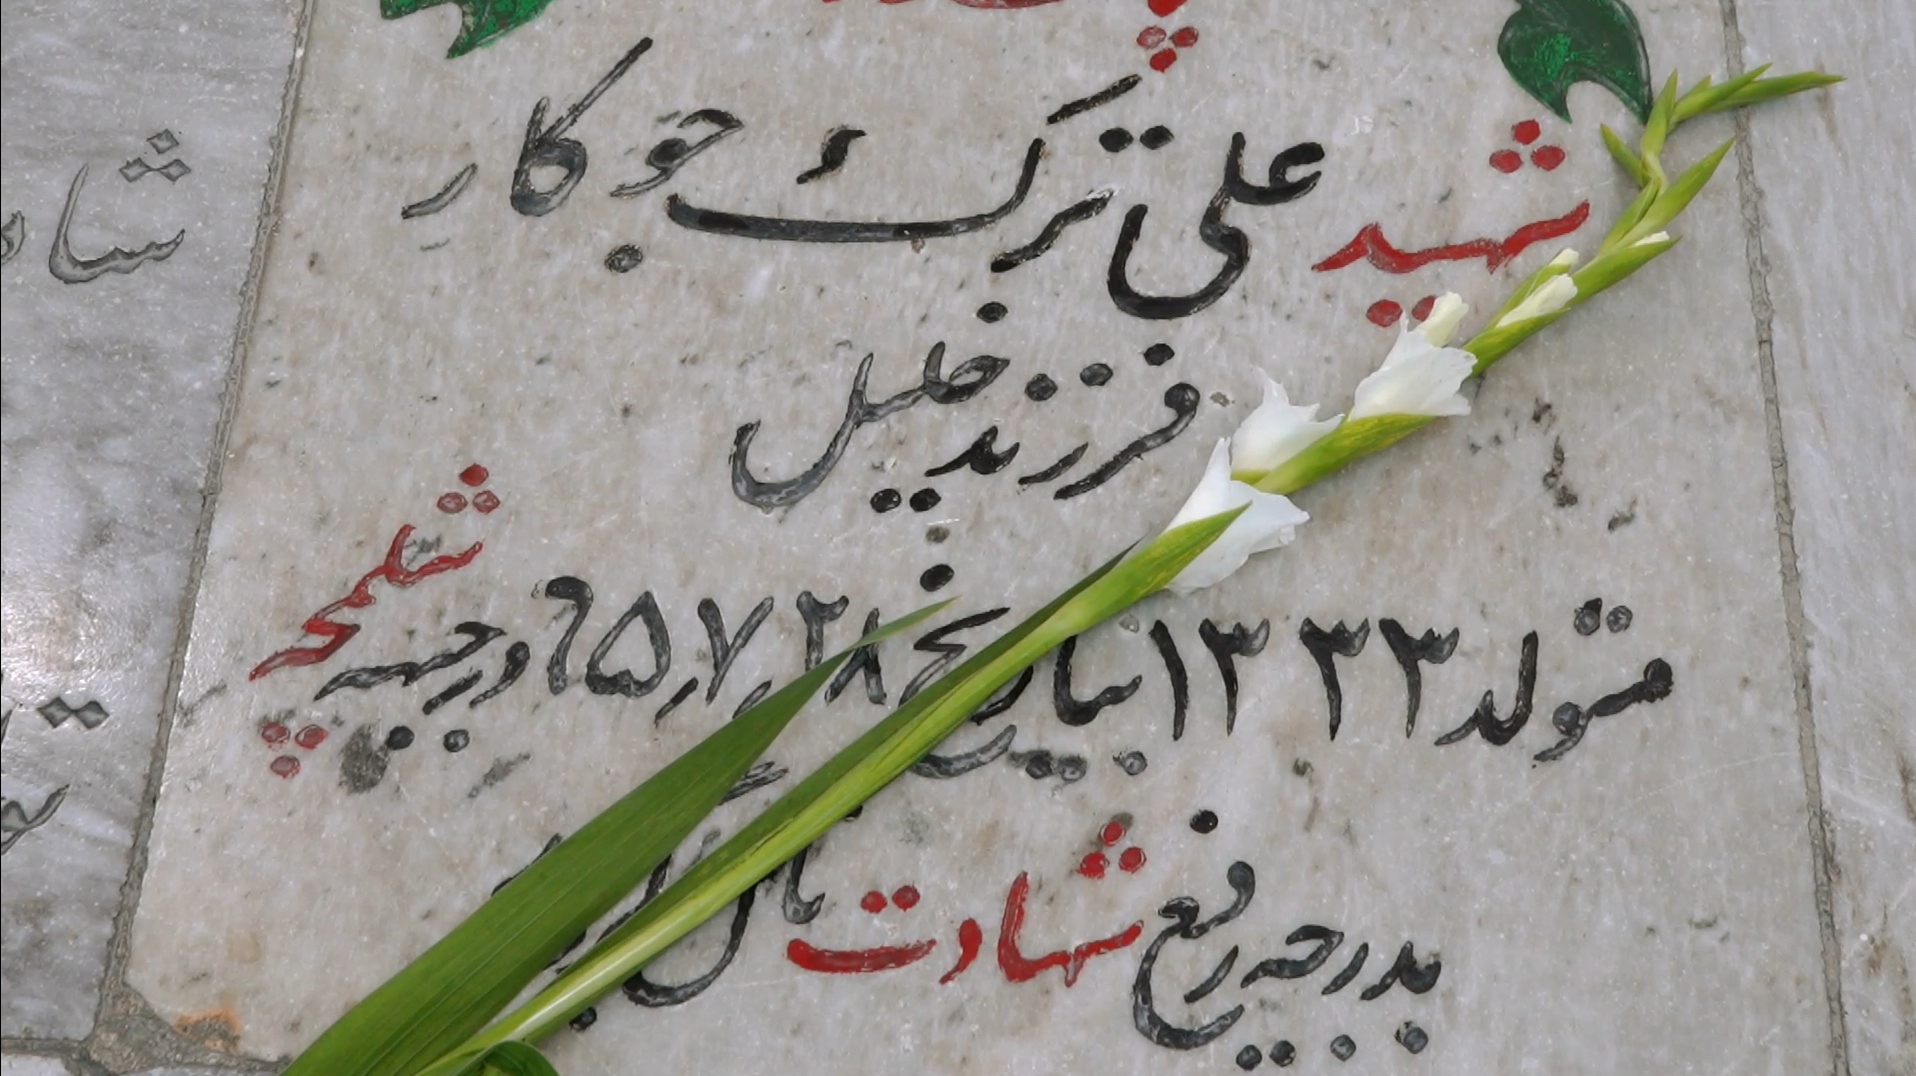 شهید علی ترک جوکار
فرزند خلیل
متولد ۱۳۳۳ بتاریخ ۲۸ر۷ر۶۵ در جبهه شلمچه
بدرجه رفیع شهادت نائل